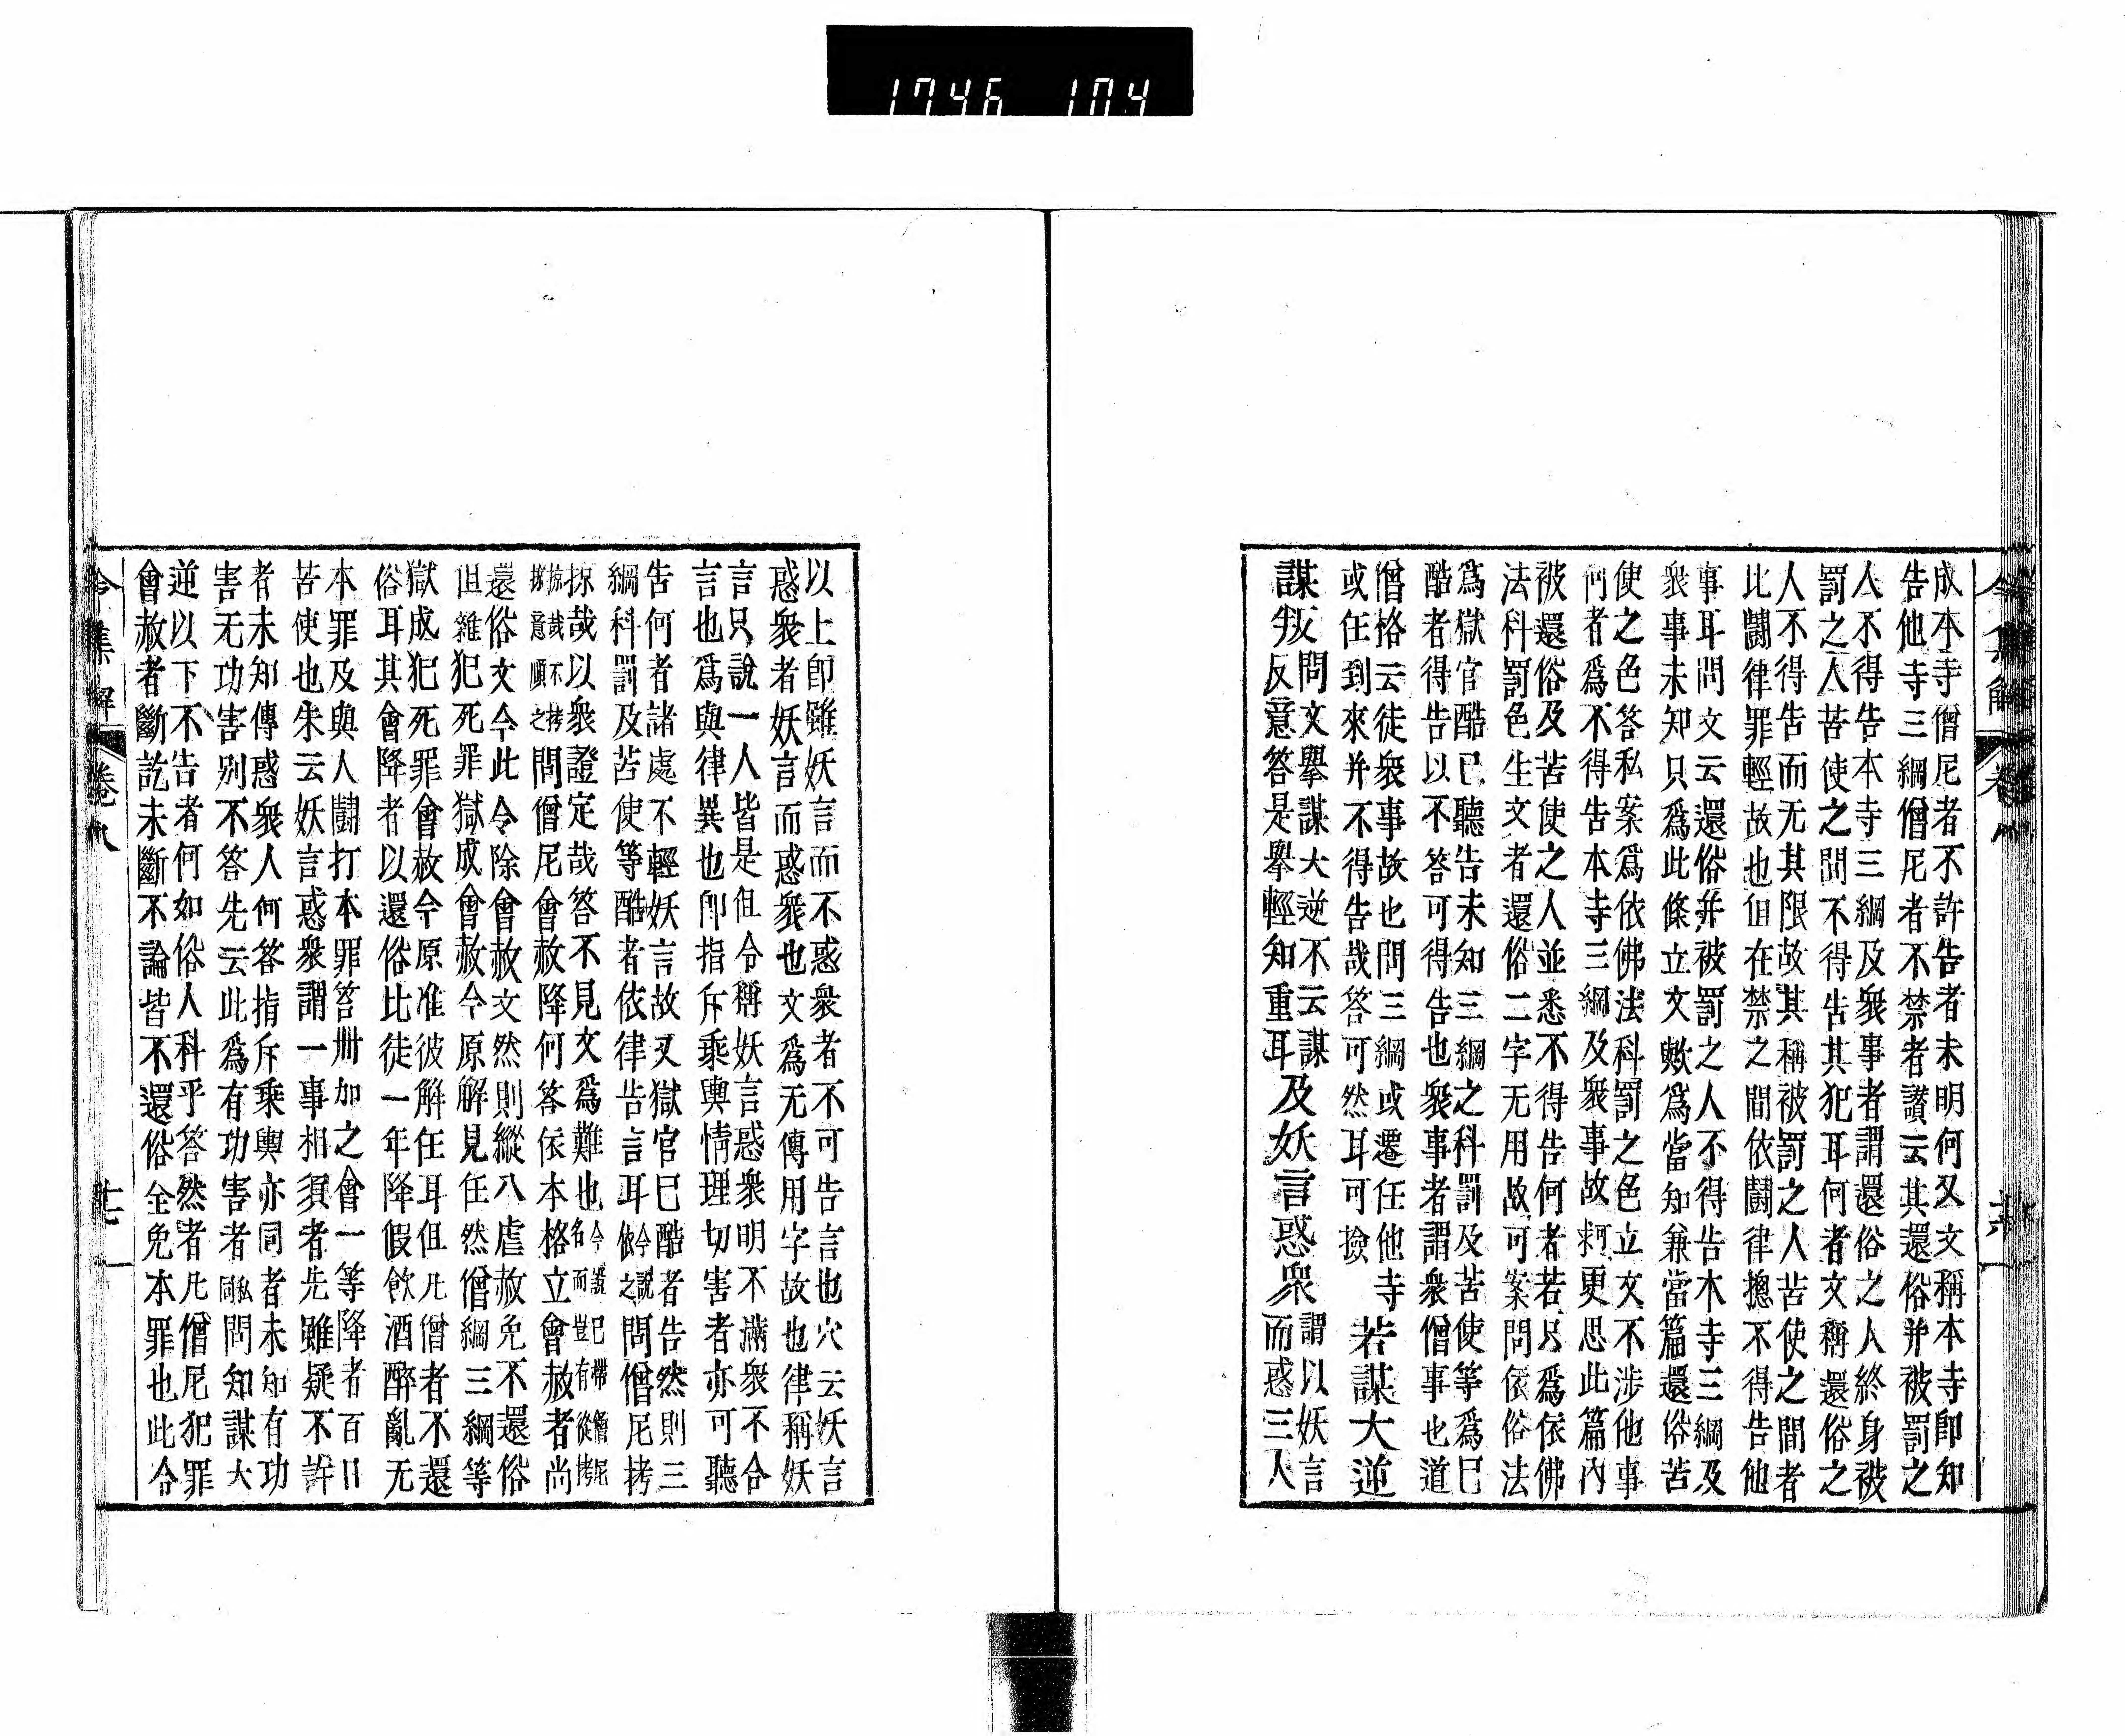 1746 104
成本寺僧尼者不許告者未明何又文稱本寺即知
告他寺三綱僧尼者不禁者讃云其還俗并被罰之
人不得告本寺三綱及衆事者謂還俗之人終身被
罰之人苦使之間不得告其犯耳何者文稱還俗之
人不得告而无其限故其稱被罰之人苦使之間者
比鬪律罪輕故也但在禁之間依鬪律摠不得告他
事耳問文云還俗并被罰之人不得告本寺三綱及
衆事未知只爲此條立文歟爲當知兼當篇還俗苦
使之色答私案爲依佛法科罰之色立文不涉他事
何者爲不得告本寺三綱及衆事故 更思此篇內
被還俗及苦使之人並悉不得告何者若只爲依佛
法科罰色生文者還俗二字无用故可案問依俗法
爲獄官酷已聽告未知三綱之科罰及苦使等爲已
酷者得告以不答可得告也衆事者謂衆僧事也道
僧格云徒衆事故也問三綱或遷任他寺
或任到來并不得告哉答可然耳可撿
若謀大逆
謀叛
問文擧謀大逆不云謀
反意答是擧輕知重耳
及妖言惑衆
謂以妖言
而惑三人
令集解 卷八
以上即雖妖言而不惑衆者不可告言也穴云妖言
惑衆者妖言而惑衆也文爲无傳用字故也律稱妖
言只說一人皆是但令稱妖言惑衆明不滿衆不合
言也爲與律異也即指斥乘輿情理切害者亦可聽
告何者諸處不輕妖言故又獄官已酷者告然則三
綱科罰及苦使等酷者依律告言耳
今說
依之
問僧尼拷
掠哉以衆證定哉答不見文爲難也
今說已帶僧尼
名而豈有從拷
掠哉不拷
意順之
問僧尼會赦降何答依本格立會赦者尚
還俗文今此令除會赦文然則縱八虐赦免不還俗
但雜犯死罪獄成會赦今原解見任然僧綱三綱等
獄成犯死罪會赦今原准彼解任耳但凡僧者不還
俗耳其會降者以還俗比徒一年降假飮酒醉亂无
本罪及與人鬪打本罪笞卌加之會一等降者百日
苦使也朱云妖言惑衆謂一事相須者先雖疑不許
者未知傳惑衆人何答指斥乘輿亦同者未知有功
害无功害別不答先云此爲有功害者
私
同
問知謀大
逆以下不告者何如俗人科乎答然者凡僧尼犯罪
會赦者斷訖未斷不論皆不還俗全免本罪也此令
令集解 卷八 十七